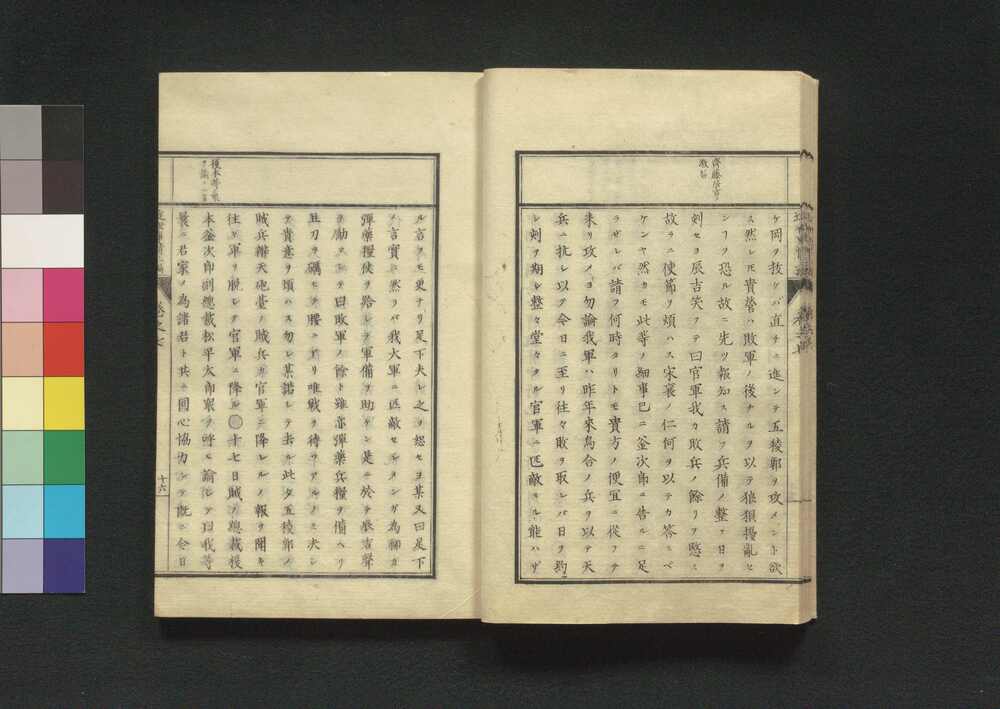 齊藤辰吉ヲ
ケ岡ヲ抜ケバ直チニ進ンテ五稜郭ヲ攻メント欲
ス然レモ貴營ハ敗軍ノ後ナルヲ以テ狼狽擾亂セ
ンヿヲ恐ル故ニ先ツ報知ス請フ兵備ノ整フ日ヲ
剣セヨ辰吉笑フテ曰官軍我カ敗兵ノ餘リヲ愍ミ
故ラニ使節ヲ煩ハス宋襄ノ仁何ヲ以テカ答ニベ
ケンヤ然カモ此等ノ細事已ニ釜次郎ニ告ルニ足
ラザレバ請フ何時タリトモ貴方ノ便宜ニ從フテ
来リ攻メヨ勿論我軍ハ昨年來烏合ノ兵ヲ以テ天
兵ニ抗シ以テ今日ニ至リ往々敗ヲ取レバ日ヲ約
シ刻ヲ期シ整々堂々タル官軍ニ匹敵スル能ハザ
ル言ヲモ更ナリ足下夫レ之ヲ恕セヨ某又曰足下
ノ言實ニ然ラバ我大軍ニ匹敵セシメンガ為聊カ
彈藥糧俵ヲ賂シテ軍備ヲ助ケン是ニ於テ辰吉聲
ヲ励マシテ曰敗軍ノ餘ト雖亦彈藥兵糧ヲ備ヘリ
且刀ヲ礪モテ腰ニアリ唯戰ヲ待ツアルノミ决シ
テ貴意ヲ煩ハス勿レ某諾シテ去ル此夕五稜郭ノ
賊兵辨天砲臺ノ賊兵カ官軍ニ降レルノ報ヲ聞キ
往々軍ヲ脱レテ官軍ニ降ル○十七日賊ノ總裁榎
本釜次郎副總裁松平太郎衆ヲ呼ヒ諭シテ曰我等
曩ニ君家ノ為諸君ト共ニ同心協力シテ既ニ今日
榎本等衆
卷之七
十六